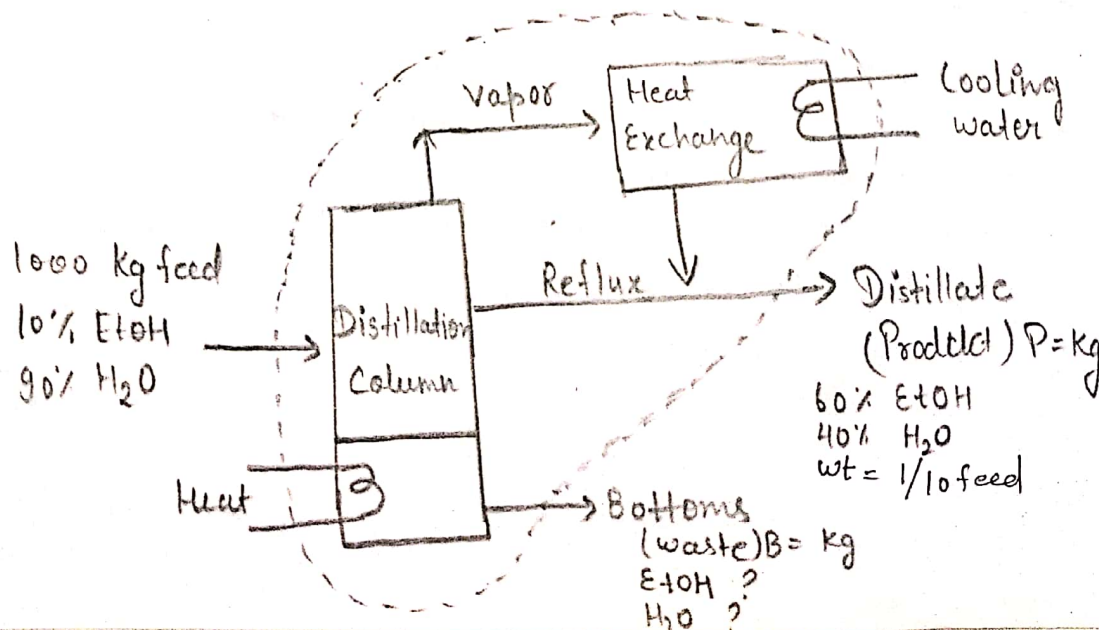 Vapor
Heat
Exchange
Cooling
water
1000 kg feed
10% EtOH
90% H₂O
Reflux
Distillation
Column
Distillate
(Product) P= kg
60% EtOH
40% H₂O
wt = 1/10 feed
Heat
Bottoms
(waste) B= kg
EtOH ?
H₂O ?